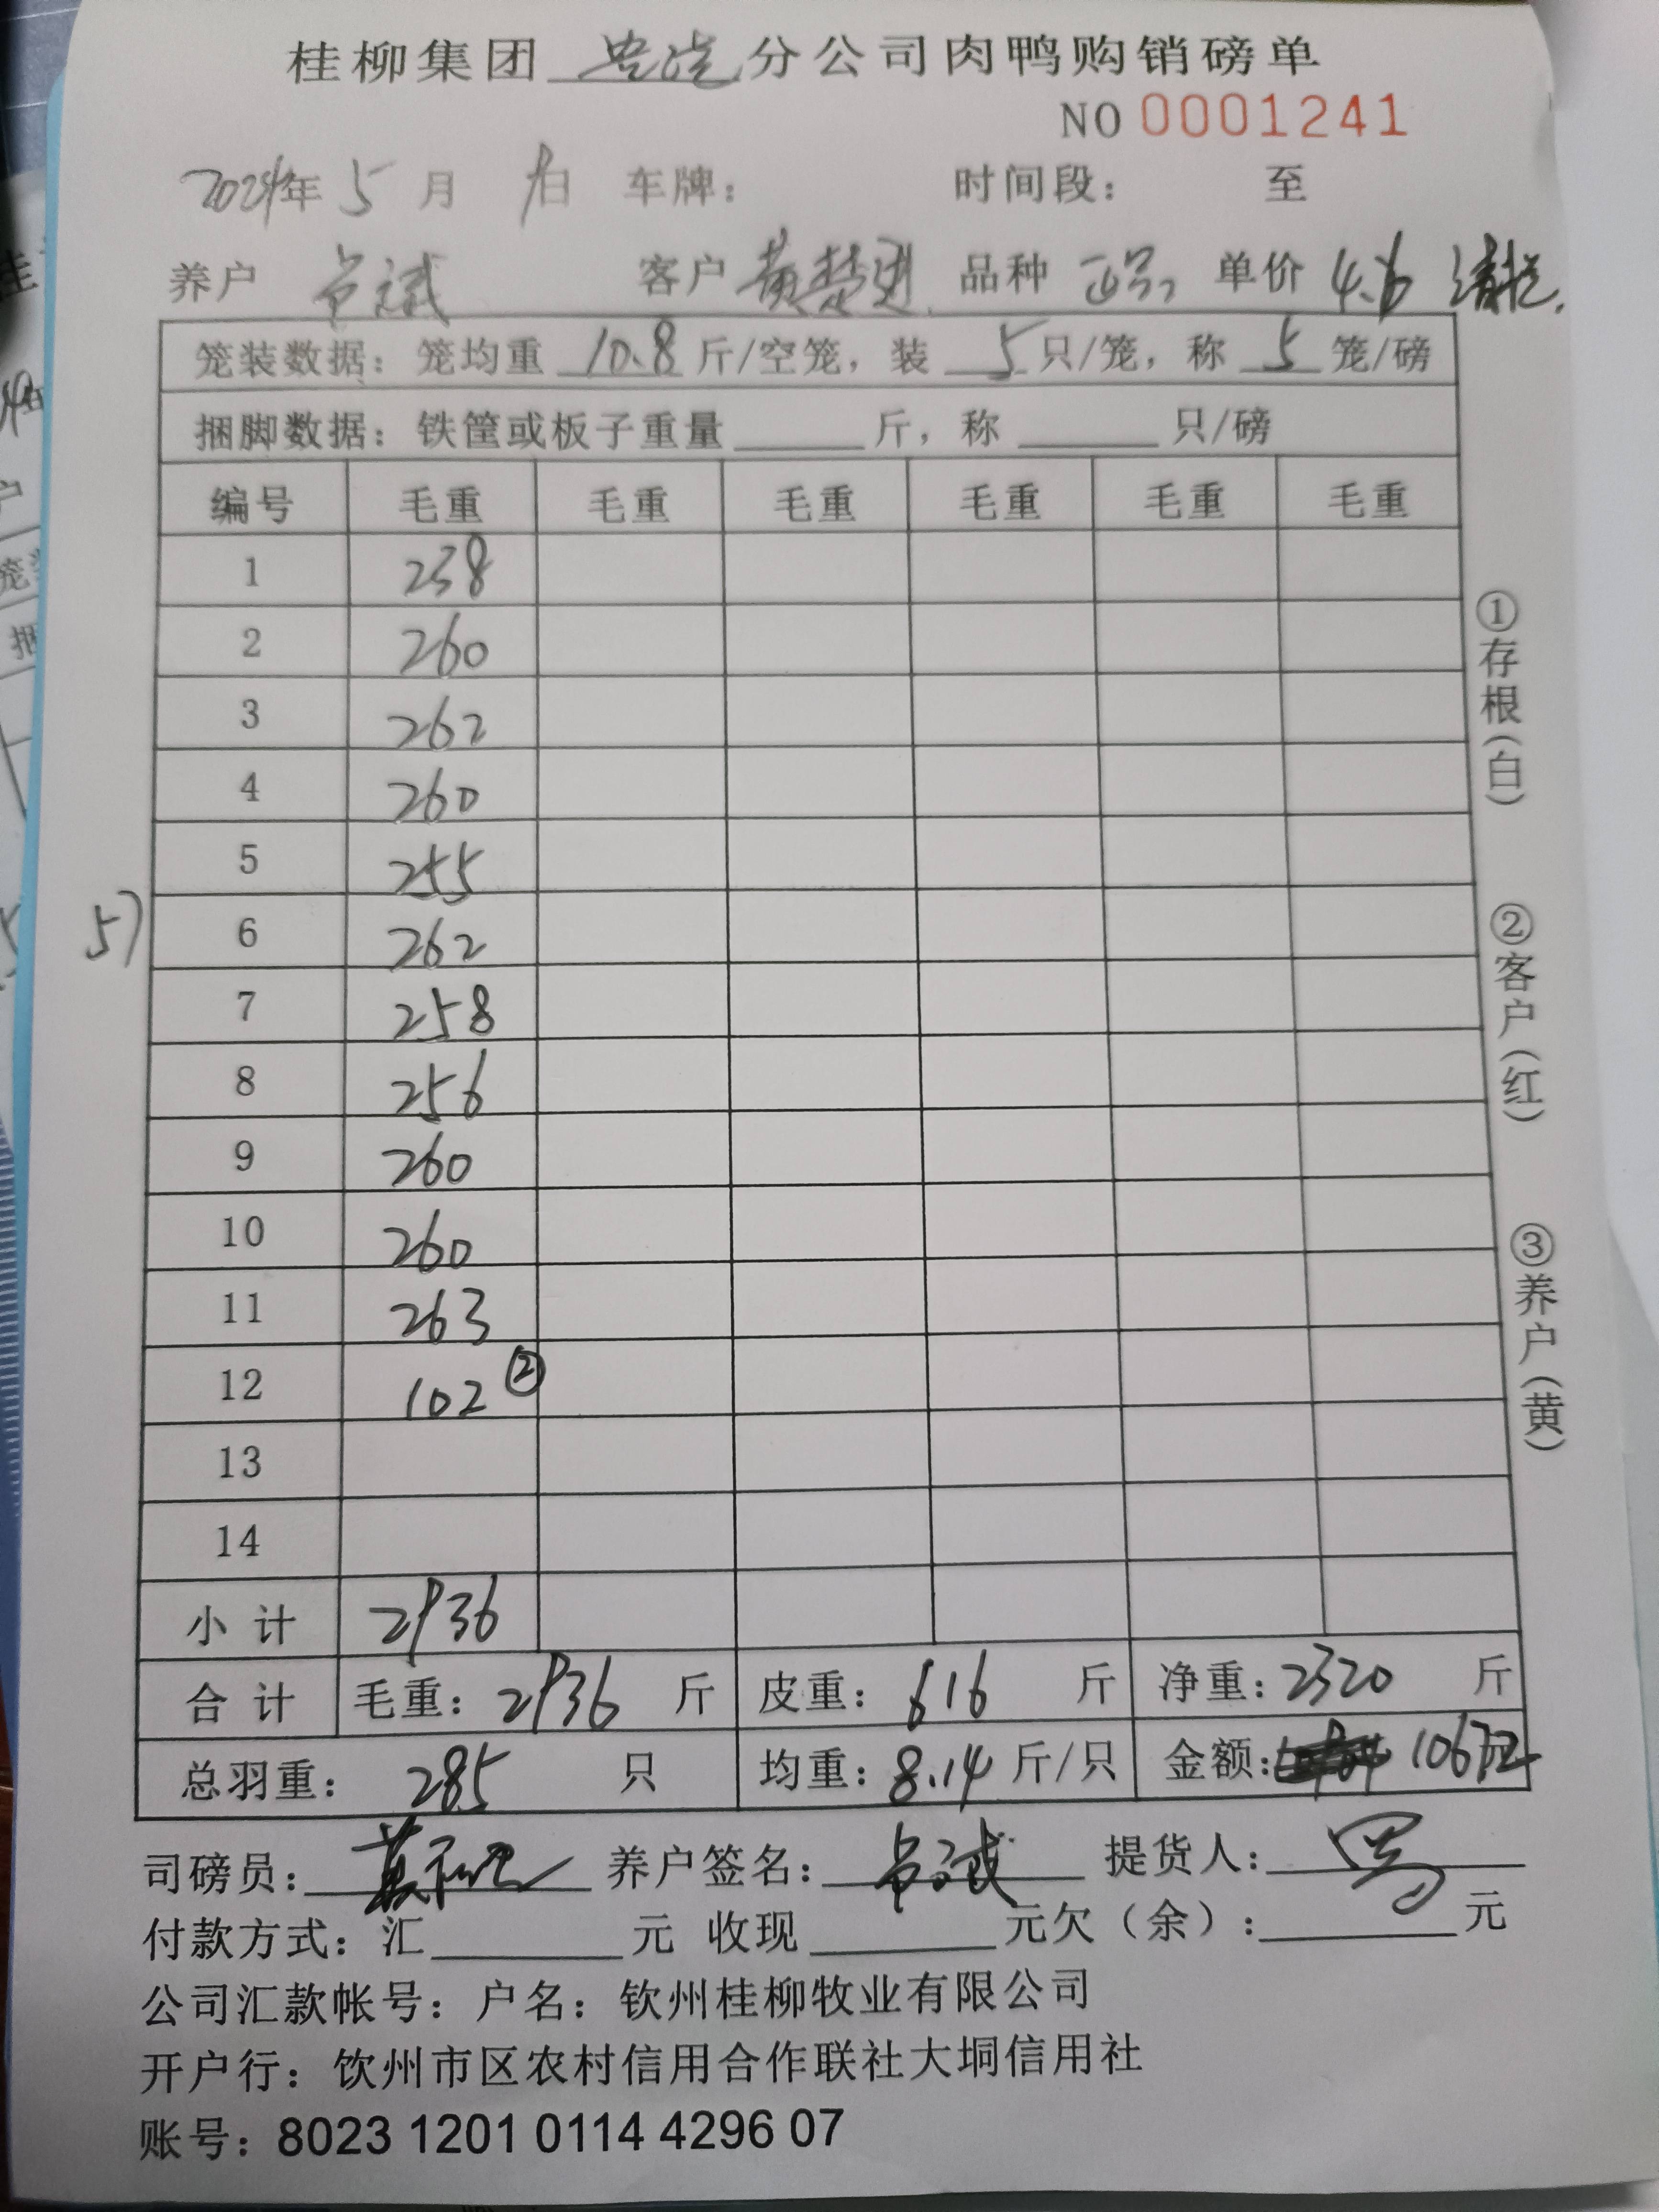 桂柳集团 分公司肉鸭购销磅单
NO 0001241
2024年 5 月 9日 车牌： 时间段： 至
养户 斌 客户 黄楚进 品种 正品 单价 4.6 清栏.
笼装数据：笼均重 10.8 斤/空笼，装 5 只/笼，称 5 笼/磅
捆脚数据：铁筐或板子重量 斤，称 只/磅
编号 毛重 毛重 毛重 毛重 毛重 毛重
1 238
2 260
3 262
4 260
5 255
5) 6 262
7 258
8 256
9 260
10 260
11 263
12 102 ②
13
14
小 计 2936
合 计 毛重：2936 斤 皮重：616 斤 净重：2320 斤
总羽重： 285 只 均重：8.14 斤/只 金额： 10672
司磅员： 养户签名： 斌 提货人：
付款方式：汇 元 收现 元欠（余）： 元
公司汇款帐号：户名：钦州桂柳牧业有限公司
开户行：钦州市区农村信用合作联社大垌信用社
账号：8023 1201 0114 4296 07
①存根(白)
②客户(红)
③养户(黄)